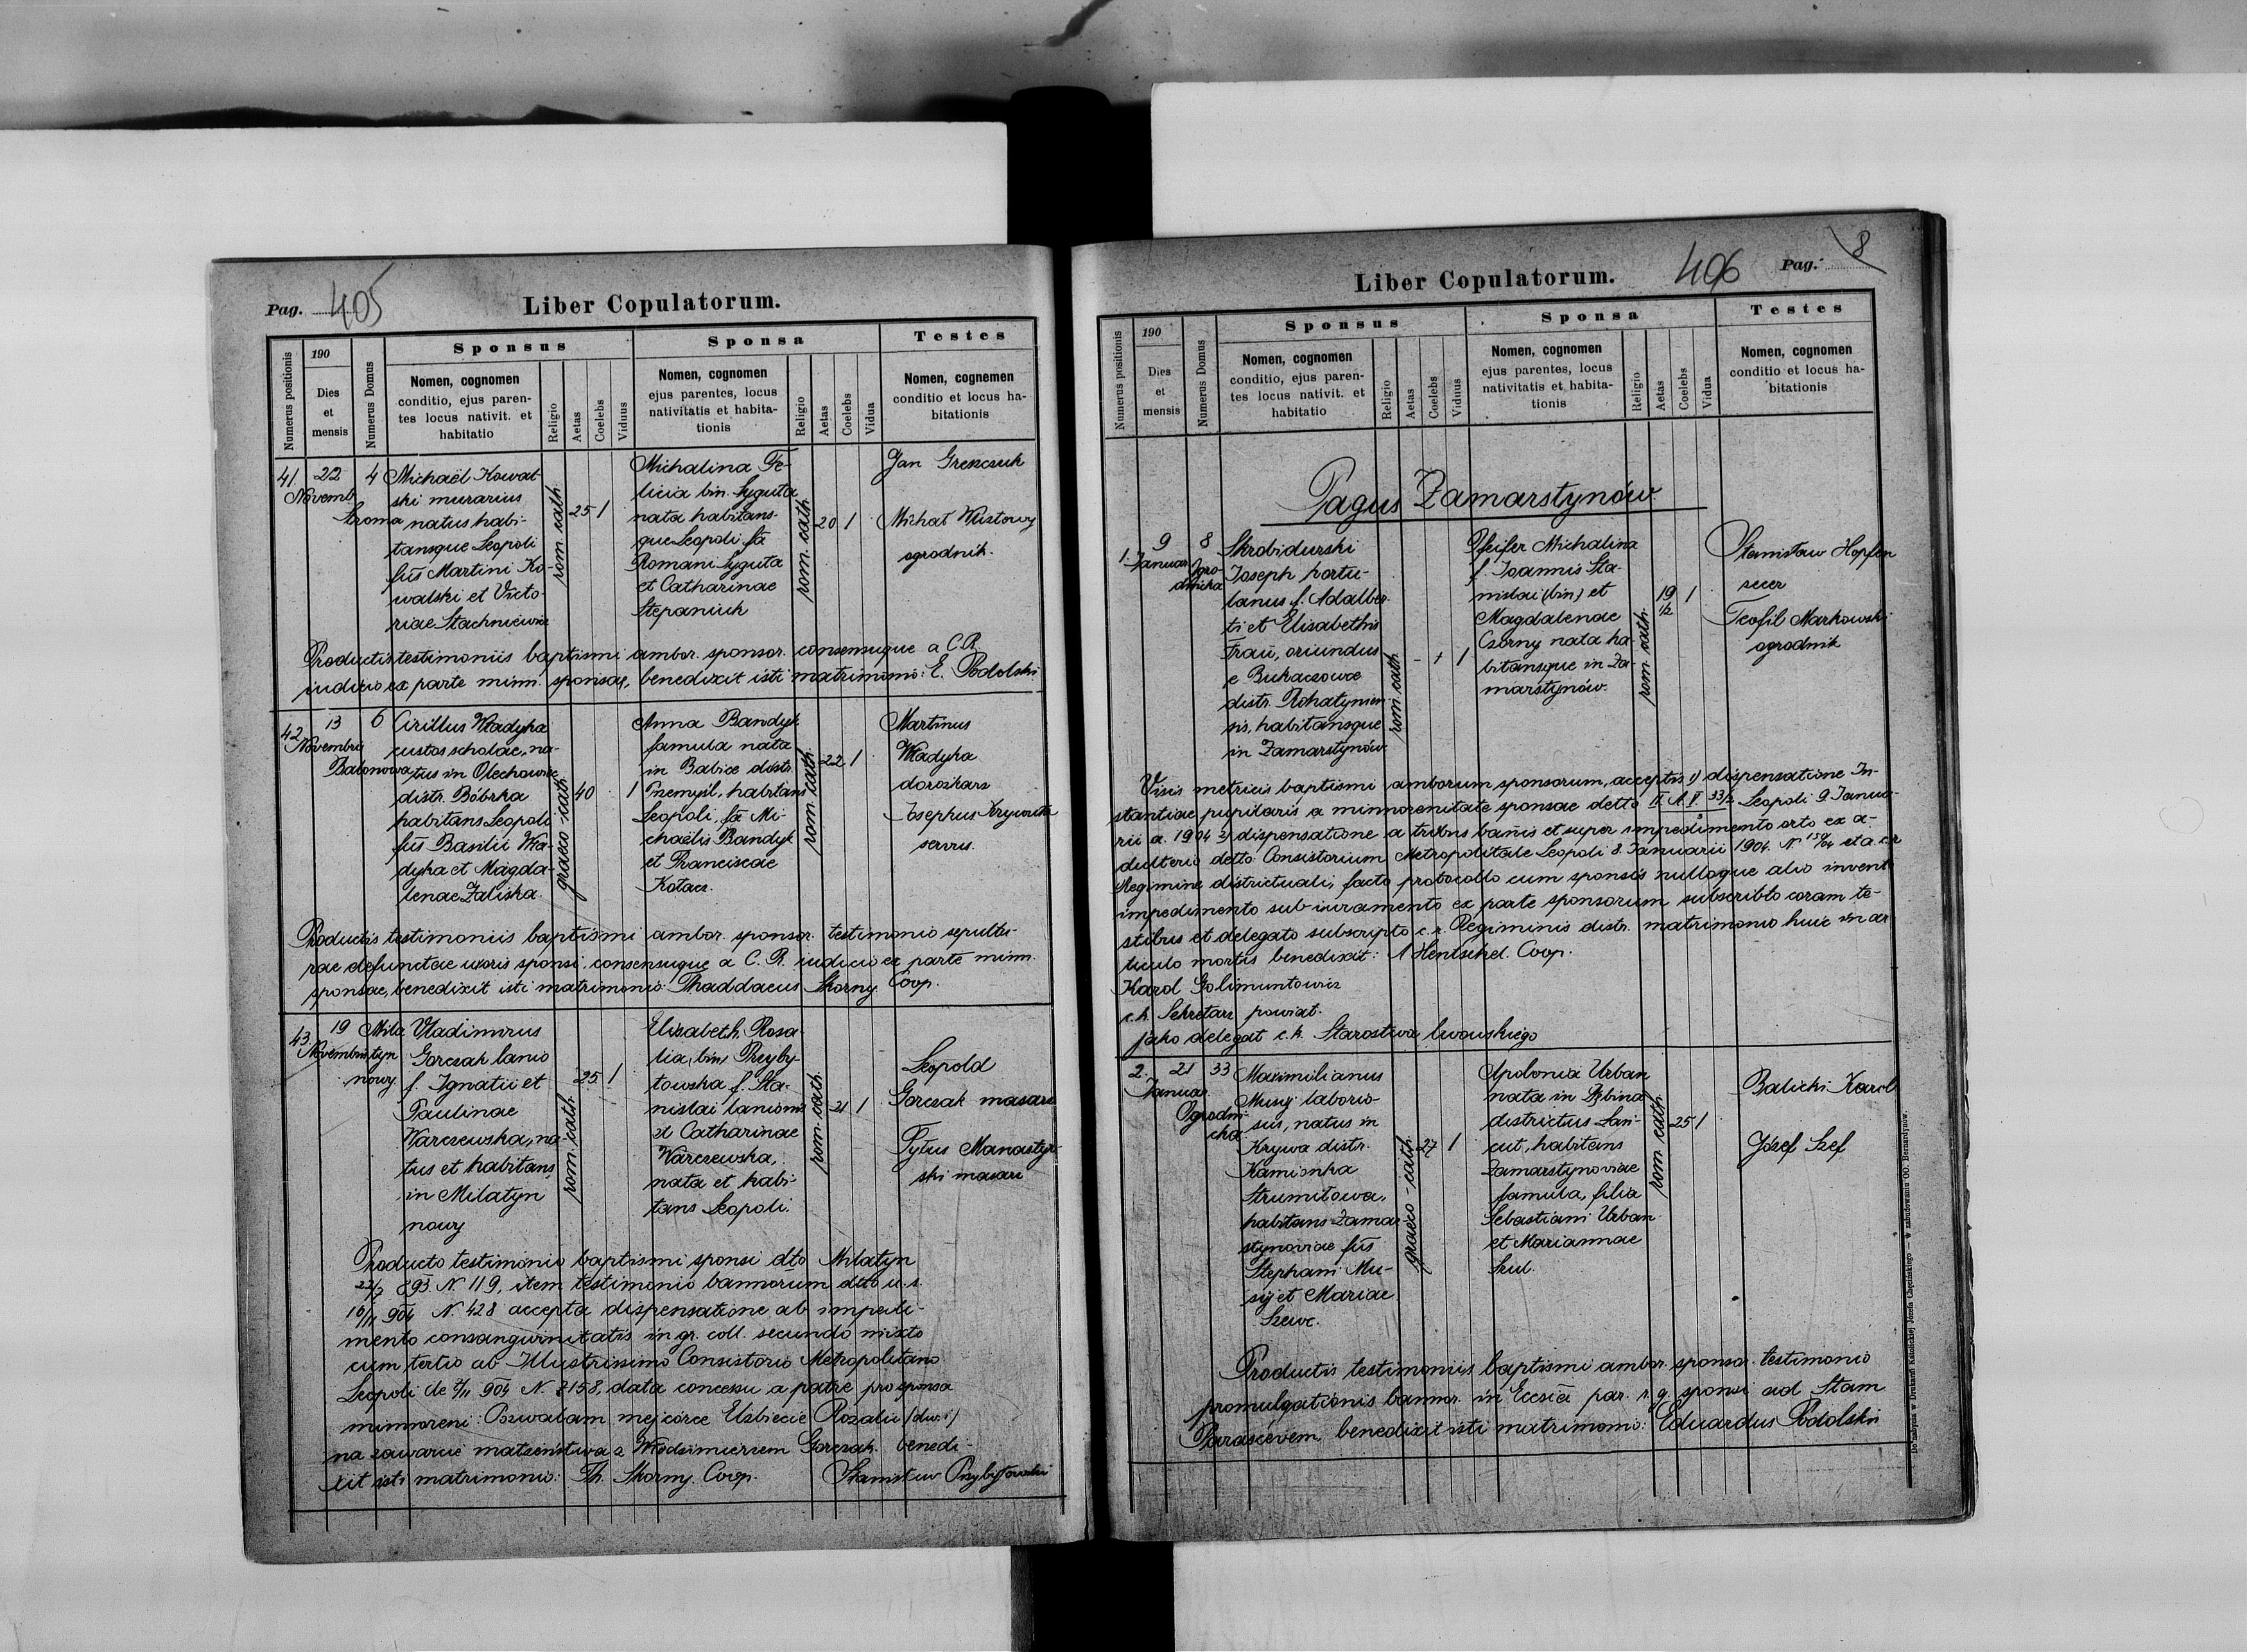 Pag. 405
Liber Copulatorum.
Numerus positionis
190
Dies
et
mensis
Numerus Domus
Sponsus
Nomen, cognomen
conditio, ejus paren-
tes locus nativit. et
habitatio
Religio
Aetas
Coelebs
Viduus
Sponsa
Nomen, cognomen
ejus parentes, locus
nativitatis et habita-
tionis
Religio
Aetas
Coelebs
Vidua
Testes
Nomen, cognemen
conditio et locus ha-
bitationis
41.
22
Novemb.
4
Stroma
Michaël Kowal-
ski murarius
natus habi-
tansque Leopoli
fus Martini Ko-
walski et Victo-
riae Stachniewicz
rom. cath.
25
1
Michalina Fe-
licia bin. Syguta
nata habitans-
que Leopoli fa
Romani Syguta
et Catharinae
Stepaniuk
rom. cath.
20
1
Jan Greszczuk
Michał
ogrodnik.
Productis testimoniis baptismi ambor. sponsor. consensuque a C.R.
iudicio ex parte minn. sponsae, benedixit isti matrimonio: E. Podolski
42.
13
Novembris
6
Balonowa
Cirillus Władyka
custos scholae, na-
tus in Olechowiec
distr. Bóbrka
habitans Leopoli
fus Basilii Wła-
dyka et Magda-
lenae Zaliska.
graeco-cath.
40
1
Anna Bandyk
famula nata
in Babice distr.
Przemyśl, habitans
Leopoli, fa Mi-
chaëlis Bandyk
et Franciscae
Kotacz.
rom. cath.
22
1
Martinus
Władyka
dorożkarz
Josephus
servus.
Productis testimoniis baptismi ambor. sponsor. testimonio sepultu-
rae defunctae uxoris sponsi, consensuque a C. R. iudicio ex parte minn.
sponsae, benedixit isti matrimonio: Thaddaeus Skorny Coop.
43.
19
Novembris
Mila
tyn
nowy
Vladimirus
Gorczak lanio
f. Ignatii et
Paulinae
Warczewska, na-
tus et habitans
in Milatyn
nowy
rom. cath.
25
1
Elisabeth Rosa-
lia (bin) Przyby-
towska f. Sta-
nislai lanionis
et Catharinae
Warczewska,
nata et habi-
tans Leopoli.
rom. cath.
21
1
Leopold
Gorczak masarz
Tytus Manastyr-
ski masarz
Producto testimonio baptismi sponsi dto Milatyn
22/7 893 N. 119, item testimonio bannorum dtto u. s.
16/11 904 N. 428 accepta dispensatione ab impedi-
mento consanguinitatis in gr. coll. secundo mixto
cum tertio ab Illustrissimo Consistorio Metropolitano
Leopoli de 7/11 904 N. 7158, data concessu a patre pro sponsa
minnoreni: Pozwalam mej córce Elżbiecie Rozalii (dw. i.)
na zawarcie małżeństwa z Włodzimierzem Gorczak. benedi-
xit isti matrimonio: Th. Skorny. Coop. Stanisław Przybyłowski
Liber Copulatorum.
406
Pag. 8
Numerus positionis
190
Dies
et
mensis
Numerus Domus
Sponsus
Nomen, cognomen
conditio, ejus paren-
tes locus nativit. et
habitatio
Religio
Aetas
Coelebs
Viduus
Sponsa
Nomen, cognomen
ejus parentes, locus
nativitatis et habita-
tionis
Religio
Aetas
Coelebs
Vidua
Testes
Nomen, cognomen
conditio et locus ha-
bitationis
Pagus Zamarstynów
1.
9
Januar.
8
Ogro-
dnicka
Skrobidurski
Joseph hortu-
lanus f. Adalber-
ti et Elisabethis
Frau, oriundus
e Bukaczowce
distr. Rohatynien-
sis, habitansque
in Zamarstynów
rom. cath.
1
Pfeifer Michalina
f. Joannis Sta-
nislai (bin) et
Magdalenae
Czorny nata ha-
bitansque in Za-
marstynów.
rom. cath.
19
1/2
1
Stanisław Hopfen
Teofil Markowski
ogrodnik
Visis metricis baptismi amborum sponsorum, acceptis 1) dispensatione In-
stantiae pupilaris a minnorenitate sponsae detto Leopoli 9 Janua-
rii a. 1904 2) dispensatione a tribus bañis et super impedimento orto ex a-
dulterio detto Consistorium Metropolitale Leopoli 8. Januarii 1904. N et a c.r
Regimine districtuali, facto protocollo cum sponsis nulloque alio invent
impedimento sub iuramento ex parte sponsorum subscribto coram te-
stibus et delegato subscripto c.r. Regiminis distr. matrimonio huic in ar
ticulo mortis benedixit: A Hentschel. Coop.
Karol Golimuntowicz
c.k. Sekretarz powiat.
jako delegat c.k. Starostwa lwowskiego
2.
21
Januar.
33
Ogrodni-
cka
Maximilianus
Musij laborio-
sus, natus in
Krywa distr.
Kamionka
Strumiłowa,
habitans Zamar-
stynoviae fus
Stephani Mu-
sij et Mariae
Szewc.
graeco-cath.
27
1
Apolonia Urban
nata in
districtus Łań-
cut, habitans
Zamarstynoviae
famula, filia
Sebastiani Urban
et Mariannae
Szul.
rom. cath.
25
1
Balicki Karol
Józef Szef
Productis testimoniis baptismi ambor. sponsor. testimonio
promulgationis bannor. in Eccsia par. r. g. sponsi ad Stam
Parascevem benedixit isti matrimonio: Eduardus Podolski
Do nabycia w Drukarni Katolickiej Józefa Chęcińskiego — w zabudowaniu OO. Bernardynów.